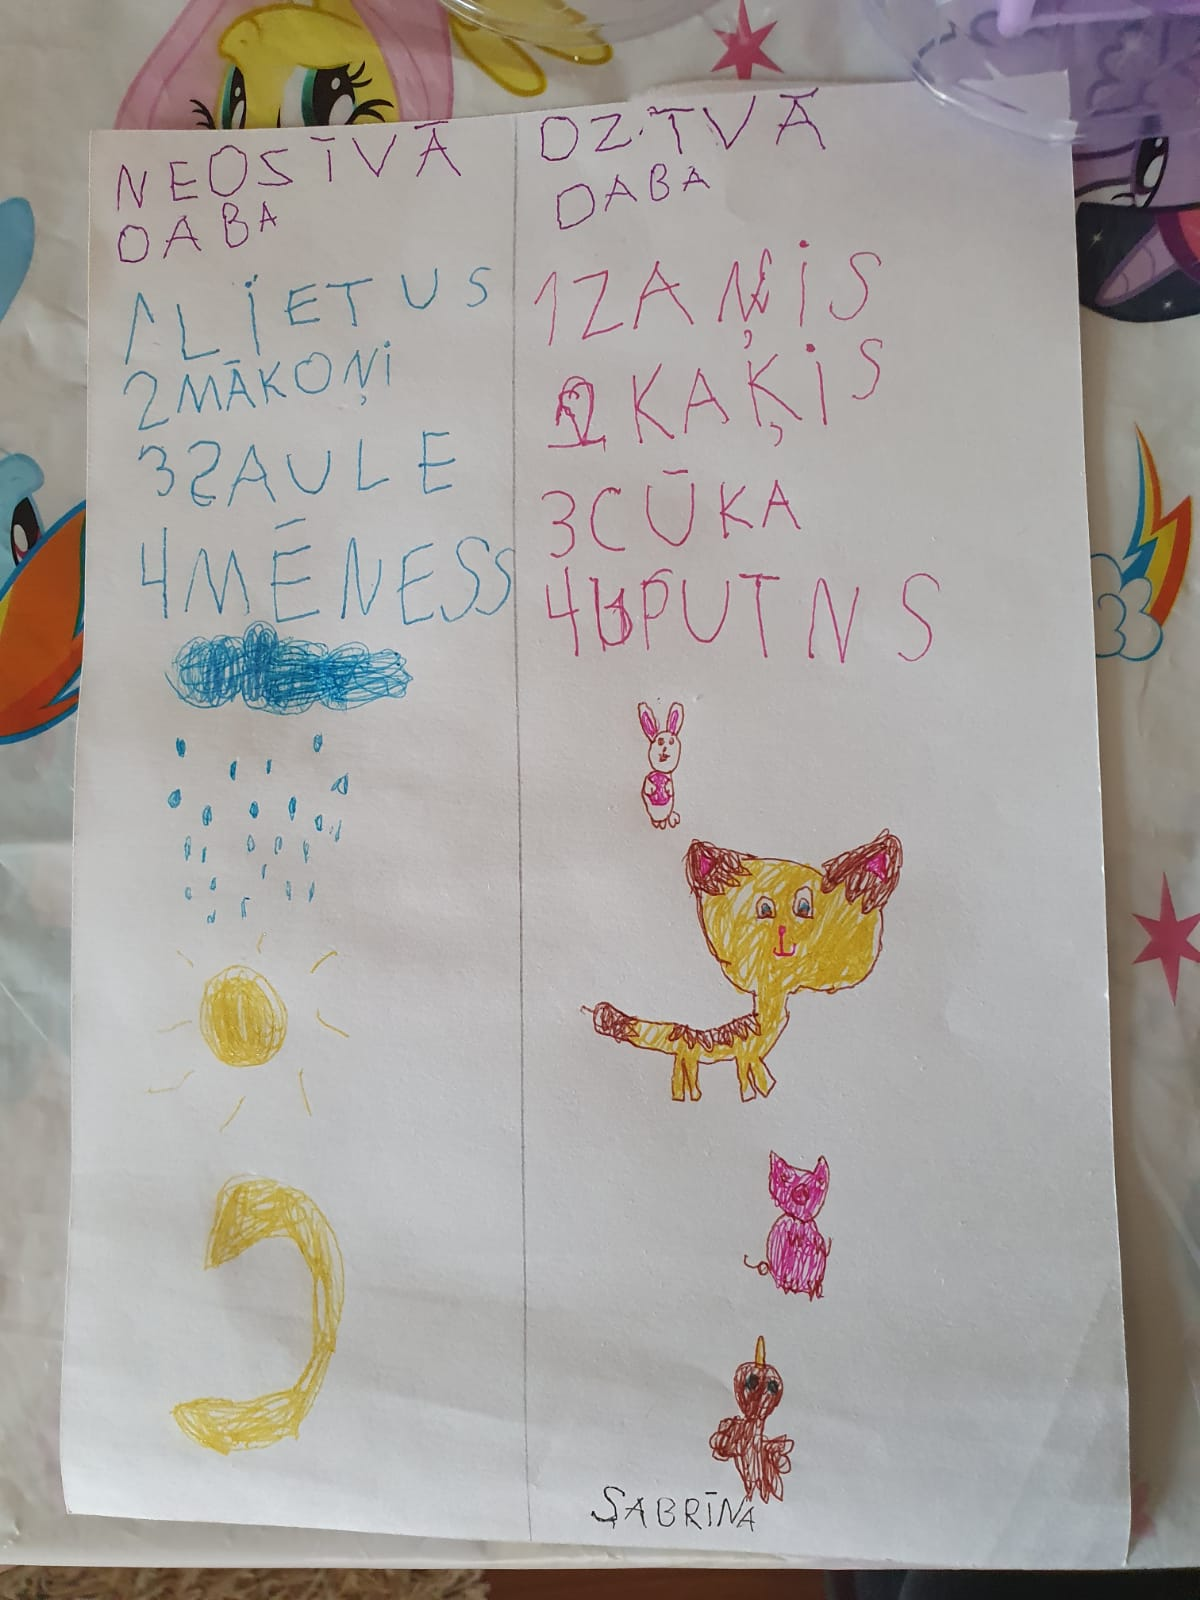 NEDSĪVĀ
DABA
1 LIETUS
2 MĀKOŅI
3 SAULE
4 MĒNESS
DZĪTVĀ
DABA
1 ZAŅĶIS
2 KAĶIS
3 CŪKA
4 PUTNS
SABRĪNA